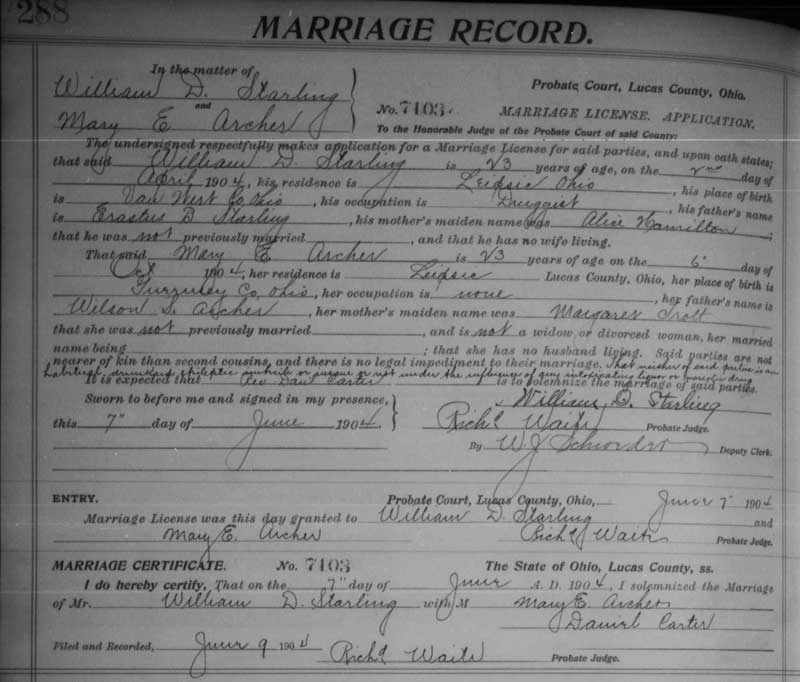 288
MARRIAGE RECORD.
In the matter of
William D. Starling
and
Mary E Archer
Probate Court, Lucas County, Ohio.
No. 7103. MARRIAGE LICENSE. APPLICATION.
To the Honorable Judge of the Probate Court of said County:
The undersigned respectfully makes application for a Marriage License for said parties, and upon oath states;
that said William D. Starling is 23 years of age, on the 2nd day of
April 1904, his residence is Leipsic Ohio, his place of birth
is Van Wert Co, Ohio, his occupation is Druggist, his father's name
is Erastus B Starling, his mother's maiden name was Alice Hamilton;
that he was not previously married, and that he has no wife living.
That said Mary E Archer is 23 years of age on the 6" day of
Oct 1904, her residence is Leipsic Lucas County, Ohio, her place of birth is
Co, Ohio, her occupation is none, her father's name is
Wilson S. Archer, her mother's maiden name was Margaret Trott
that she was not previously married, and is not a widow or divorced woman, her married
name being ; that she has no husband living. Said parties are not
nearer of kin than second cousins, and there is no legal impediment to their marriage. That neither of said parties is an
habitual drunkard, epileptic, imbecile or insane or not under the influence of any intoxicating liquor or narcotic drug
It is expected that Rev Dan'l Carter is to solemnize the marriage of said parties.
Sworn to before me and signed in my presence, William D. Starling
this 7" day of June 1904. Rich'd Waite Probate Judge.
By W J Schroeder Deputy Clerk.
ENTRY. Probate Court, Lucas County, Ohio, June 7" 1904
Marriage License was this day granted to William D. Starling and
Mary E. Archer Rich'd Waite Probate Judge.
MARRIAGE CERTIFICATE. No. 7103 The State of Ohio, Lucas County, ss.
I do hereby certify, That on the 7" day of June A. D. 1904, I solemnized the Marriage
of Mr. William D. Starling with M Mary E. Archer
Daniel Carter
Filed and Recorded, June 9 1904 Rich'd Waite Probate Judge.